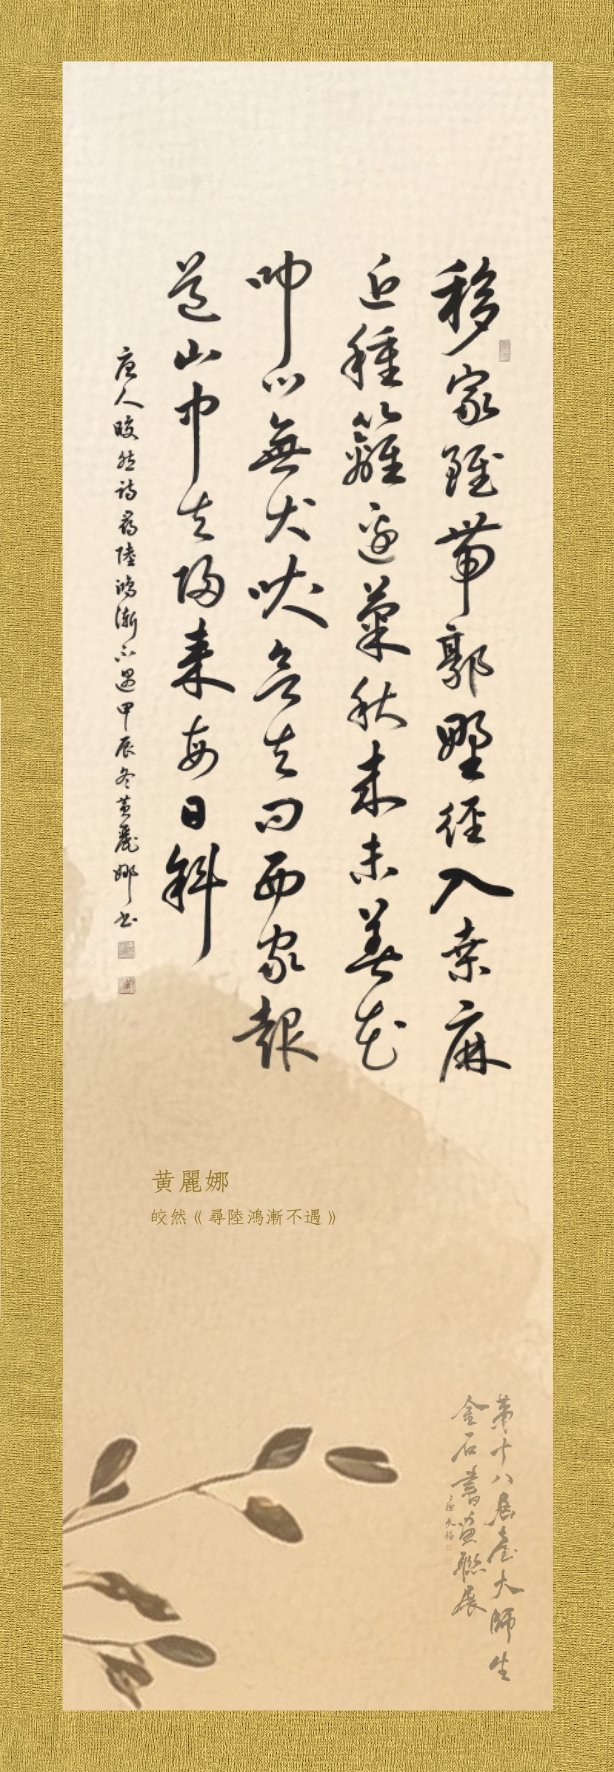 移家雖帶郭野徑入桑麻
近種籬邊菊秋來未著花
叩門無犬吠欲去問西家報
道山中去歸來每日斜
唐人皎然詩尋陸鴻漸不遇甲辰冬黃麗娜書
黃麗娜
皎然《尋陸鴻漸不遇》
第十八屆臺大師生
金石書畫聯展